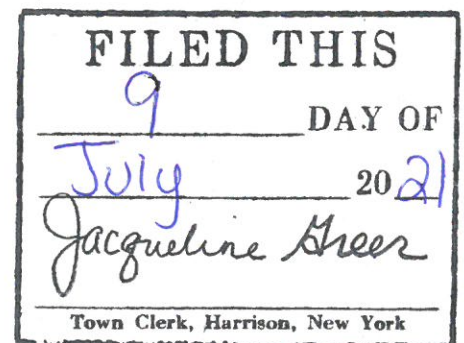 FILED THIS
9 DAY OF
July 2021
Jacqueline Greer
Town Clerk, Harrison, New York